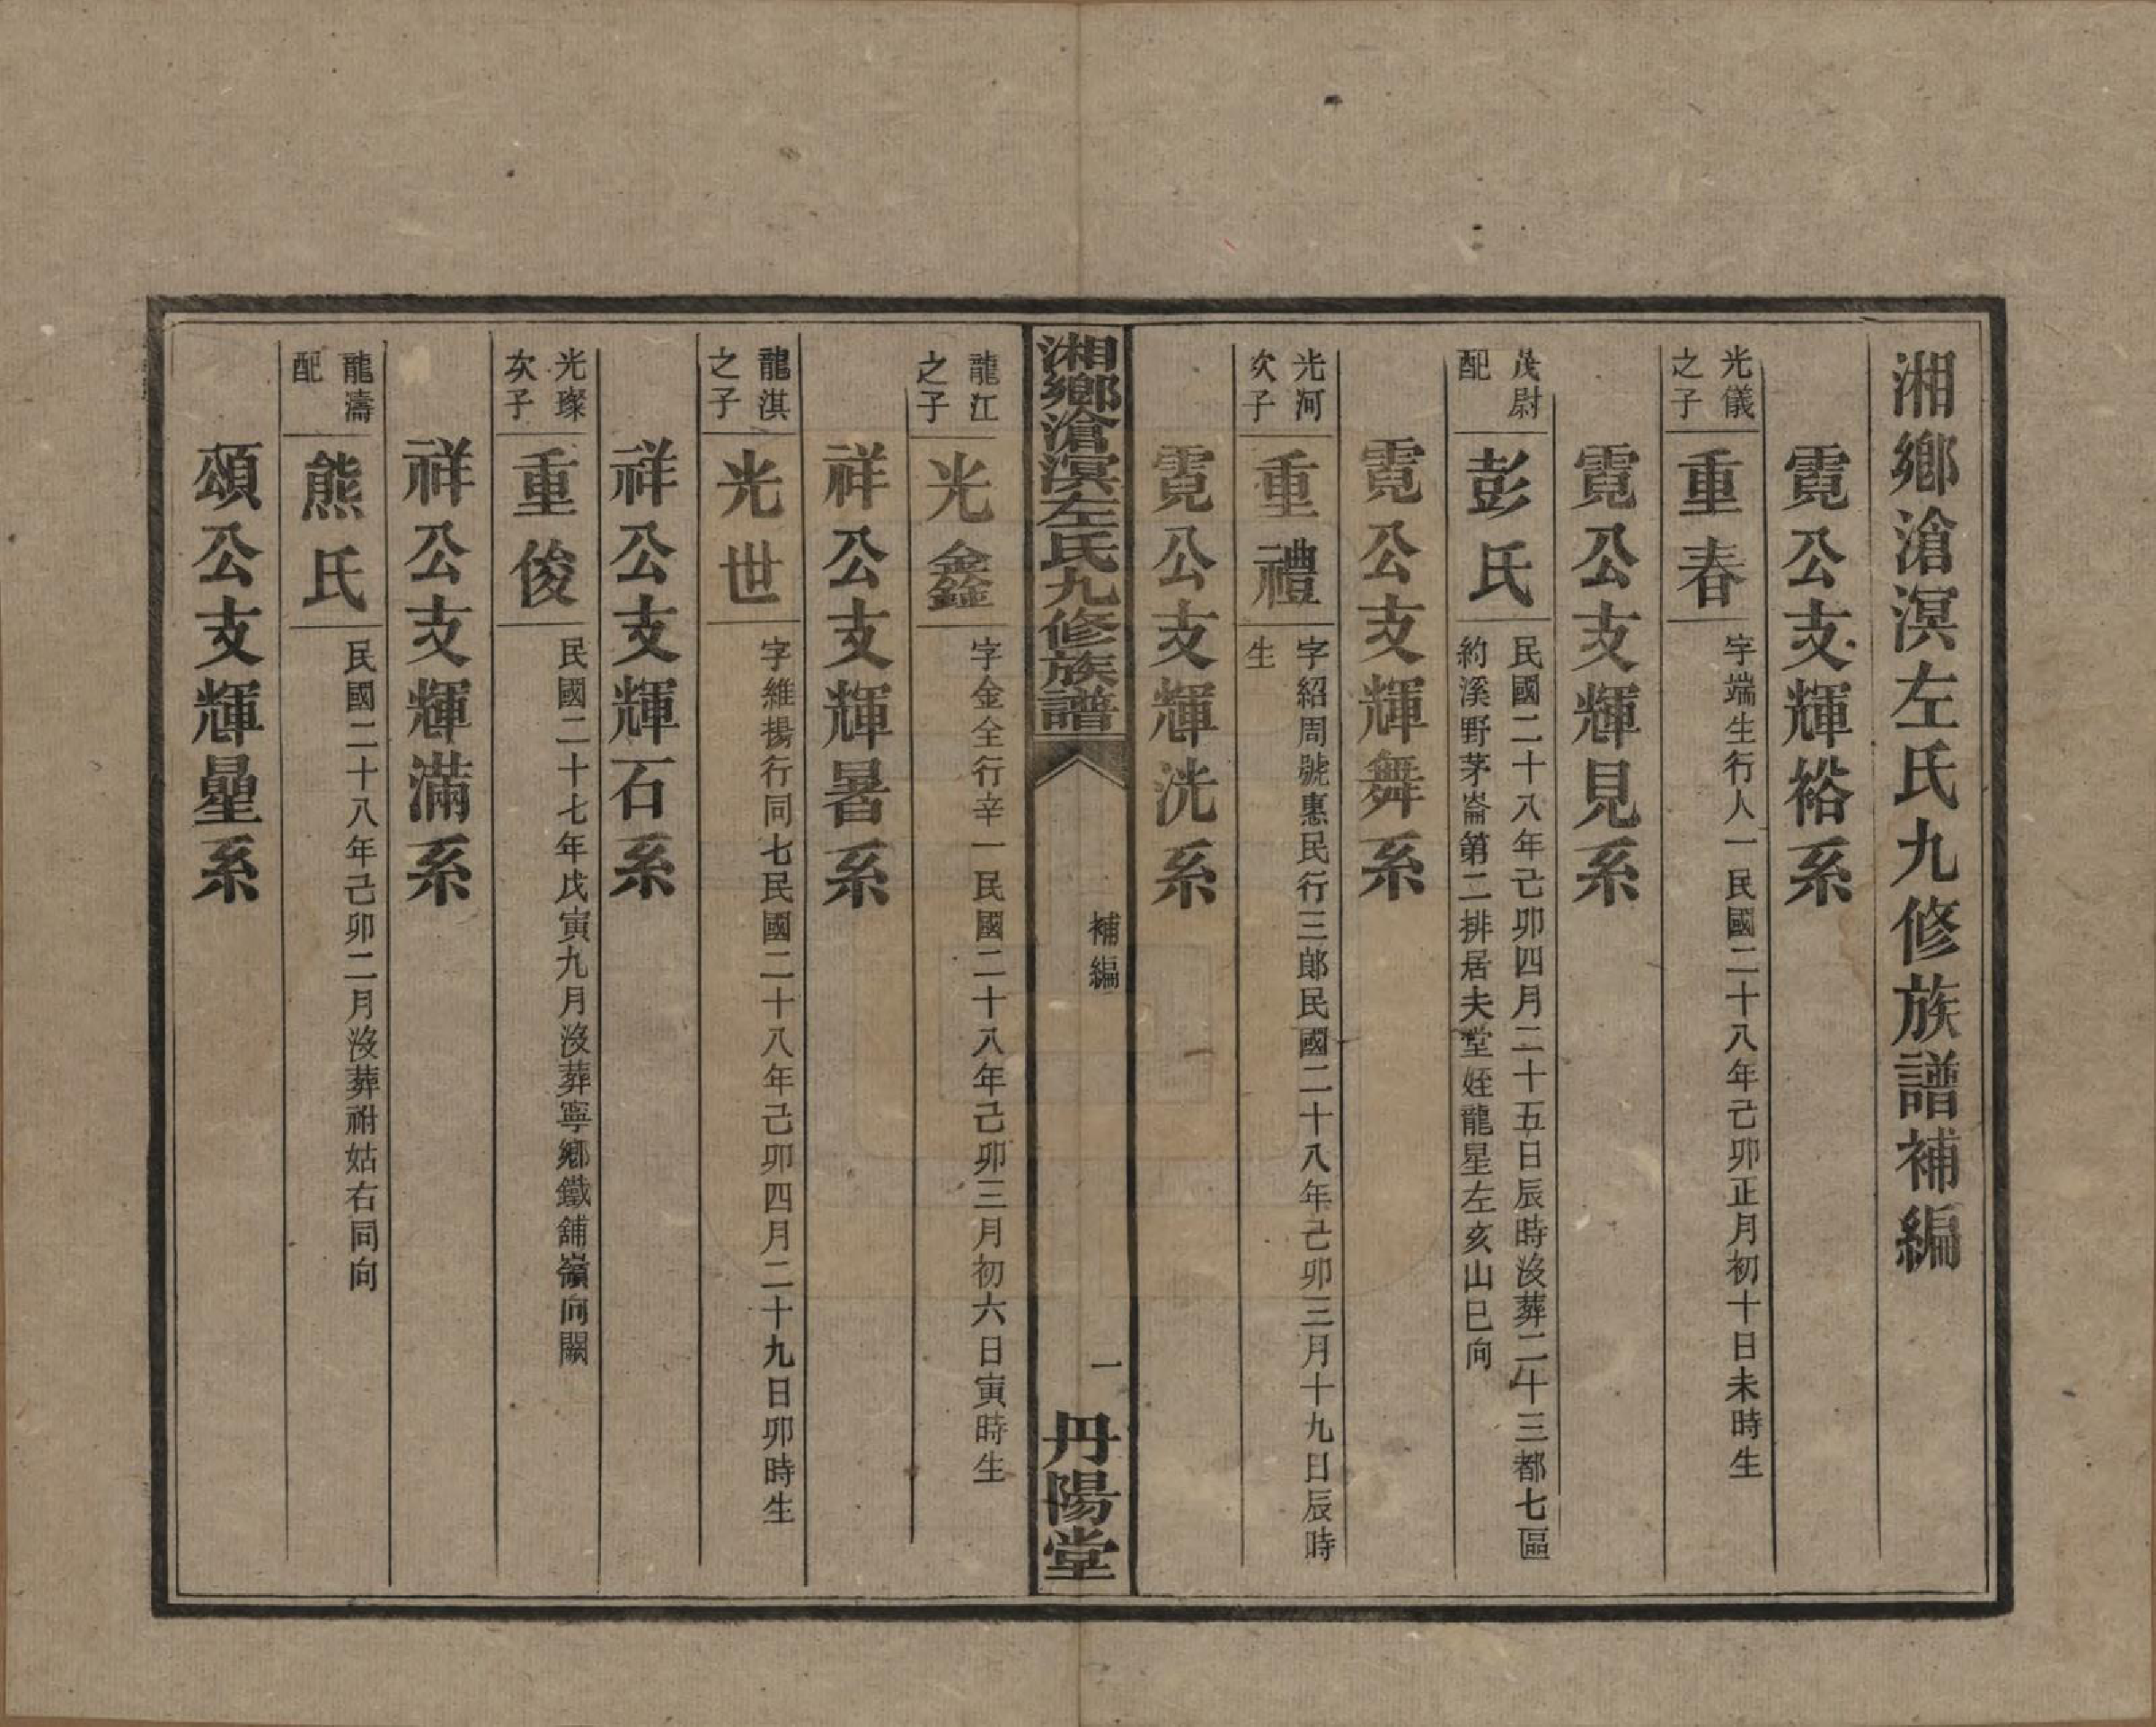 湘鄉滄溟左氏九修族譜補編
霓公支輝裕系
光儀之子
重春
字端生行人一民國二十八年己卯正月初十日未時生
霓公支輝見系
茂尉配
彭氏
民國二十八年己卯四月二十五日辰時沒葬二十三都七區
約溪野茅崙第二排居夫堂姪龍星左亥山巳向
霓公支輝舞系
光河次子
重禮
字紹周號惠民行三郎民國二十八年己卯三月十九日辰時
生
霓公支輝洸系
湘鄉滄溟左氏九修族譜
補編
一
丹陽堂
龍江之子
光鑫
字金全行辛一民國二十八年己卯三月初六日寅時生
祥公支輝暑系
龍淇之子
光世
字維揚行同七民國二十八年己卯四月二十九日卯時生
祥公支輝石系
光璨次子
重俊
民國二十七年戊寅九月沒葬寧鄉鐵鋪嶺向闕
祥公支輝滿系
龍濤配
熊氏
民國二十八年己卯二月沒葬祔姑右同向
頌公支輝星系